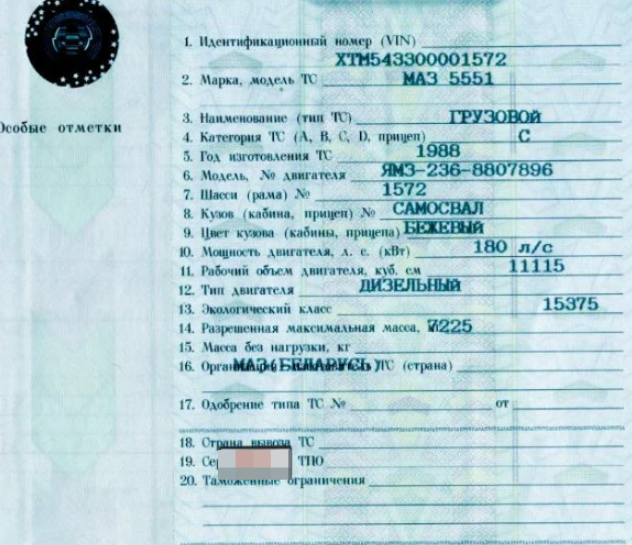 1. Идентификационный номер (VIN)
XTM543300001572
2. Марка, модель ТС МАЗ 5551
3. Наименование (тип ТС) ГРУЗОВОЙ
Особые отметки
4. Категория ТС (А, В, С, D, прицеп) С
5. Год изготовления ТС 1988
6. Модель, № двигателя ЯМЗ-236-8807896
7. Шасси (рама) № 1572
8. Кузов (кабина, прицеп) № САМОСВАЛ
9. Цвет кузова (кабины, прицепа) БЕЖЕВЫЙ
10. Мощность двигателя, л. с. (кВт) 180 л/с
11. Рабочий объем двигателя, куб. см 11115
12. Тип двигателя ДИЗЕЛЬНЫЙ
13. Экологический класс 15375
14. Разрешенная максимальная масса, 7225
15. Масса без нагрузки, кг
16. МАЗ(БЕЛАРУСЬ) ТС (страна)
17. Одобрение типа ТС № от
18. Страна вывоза ТС
19. ТПО
20. Таможенные ограничения